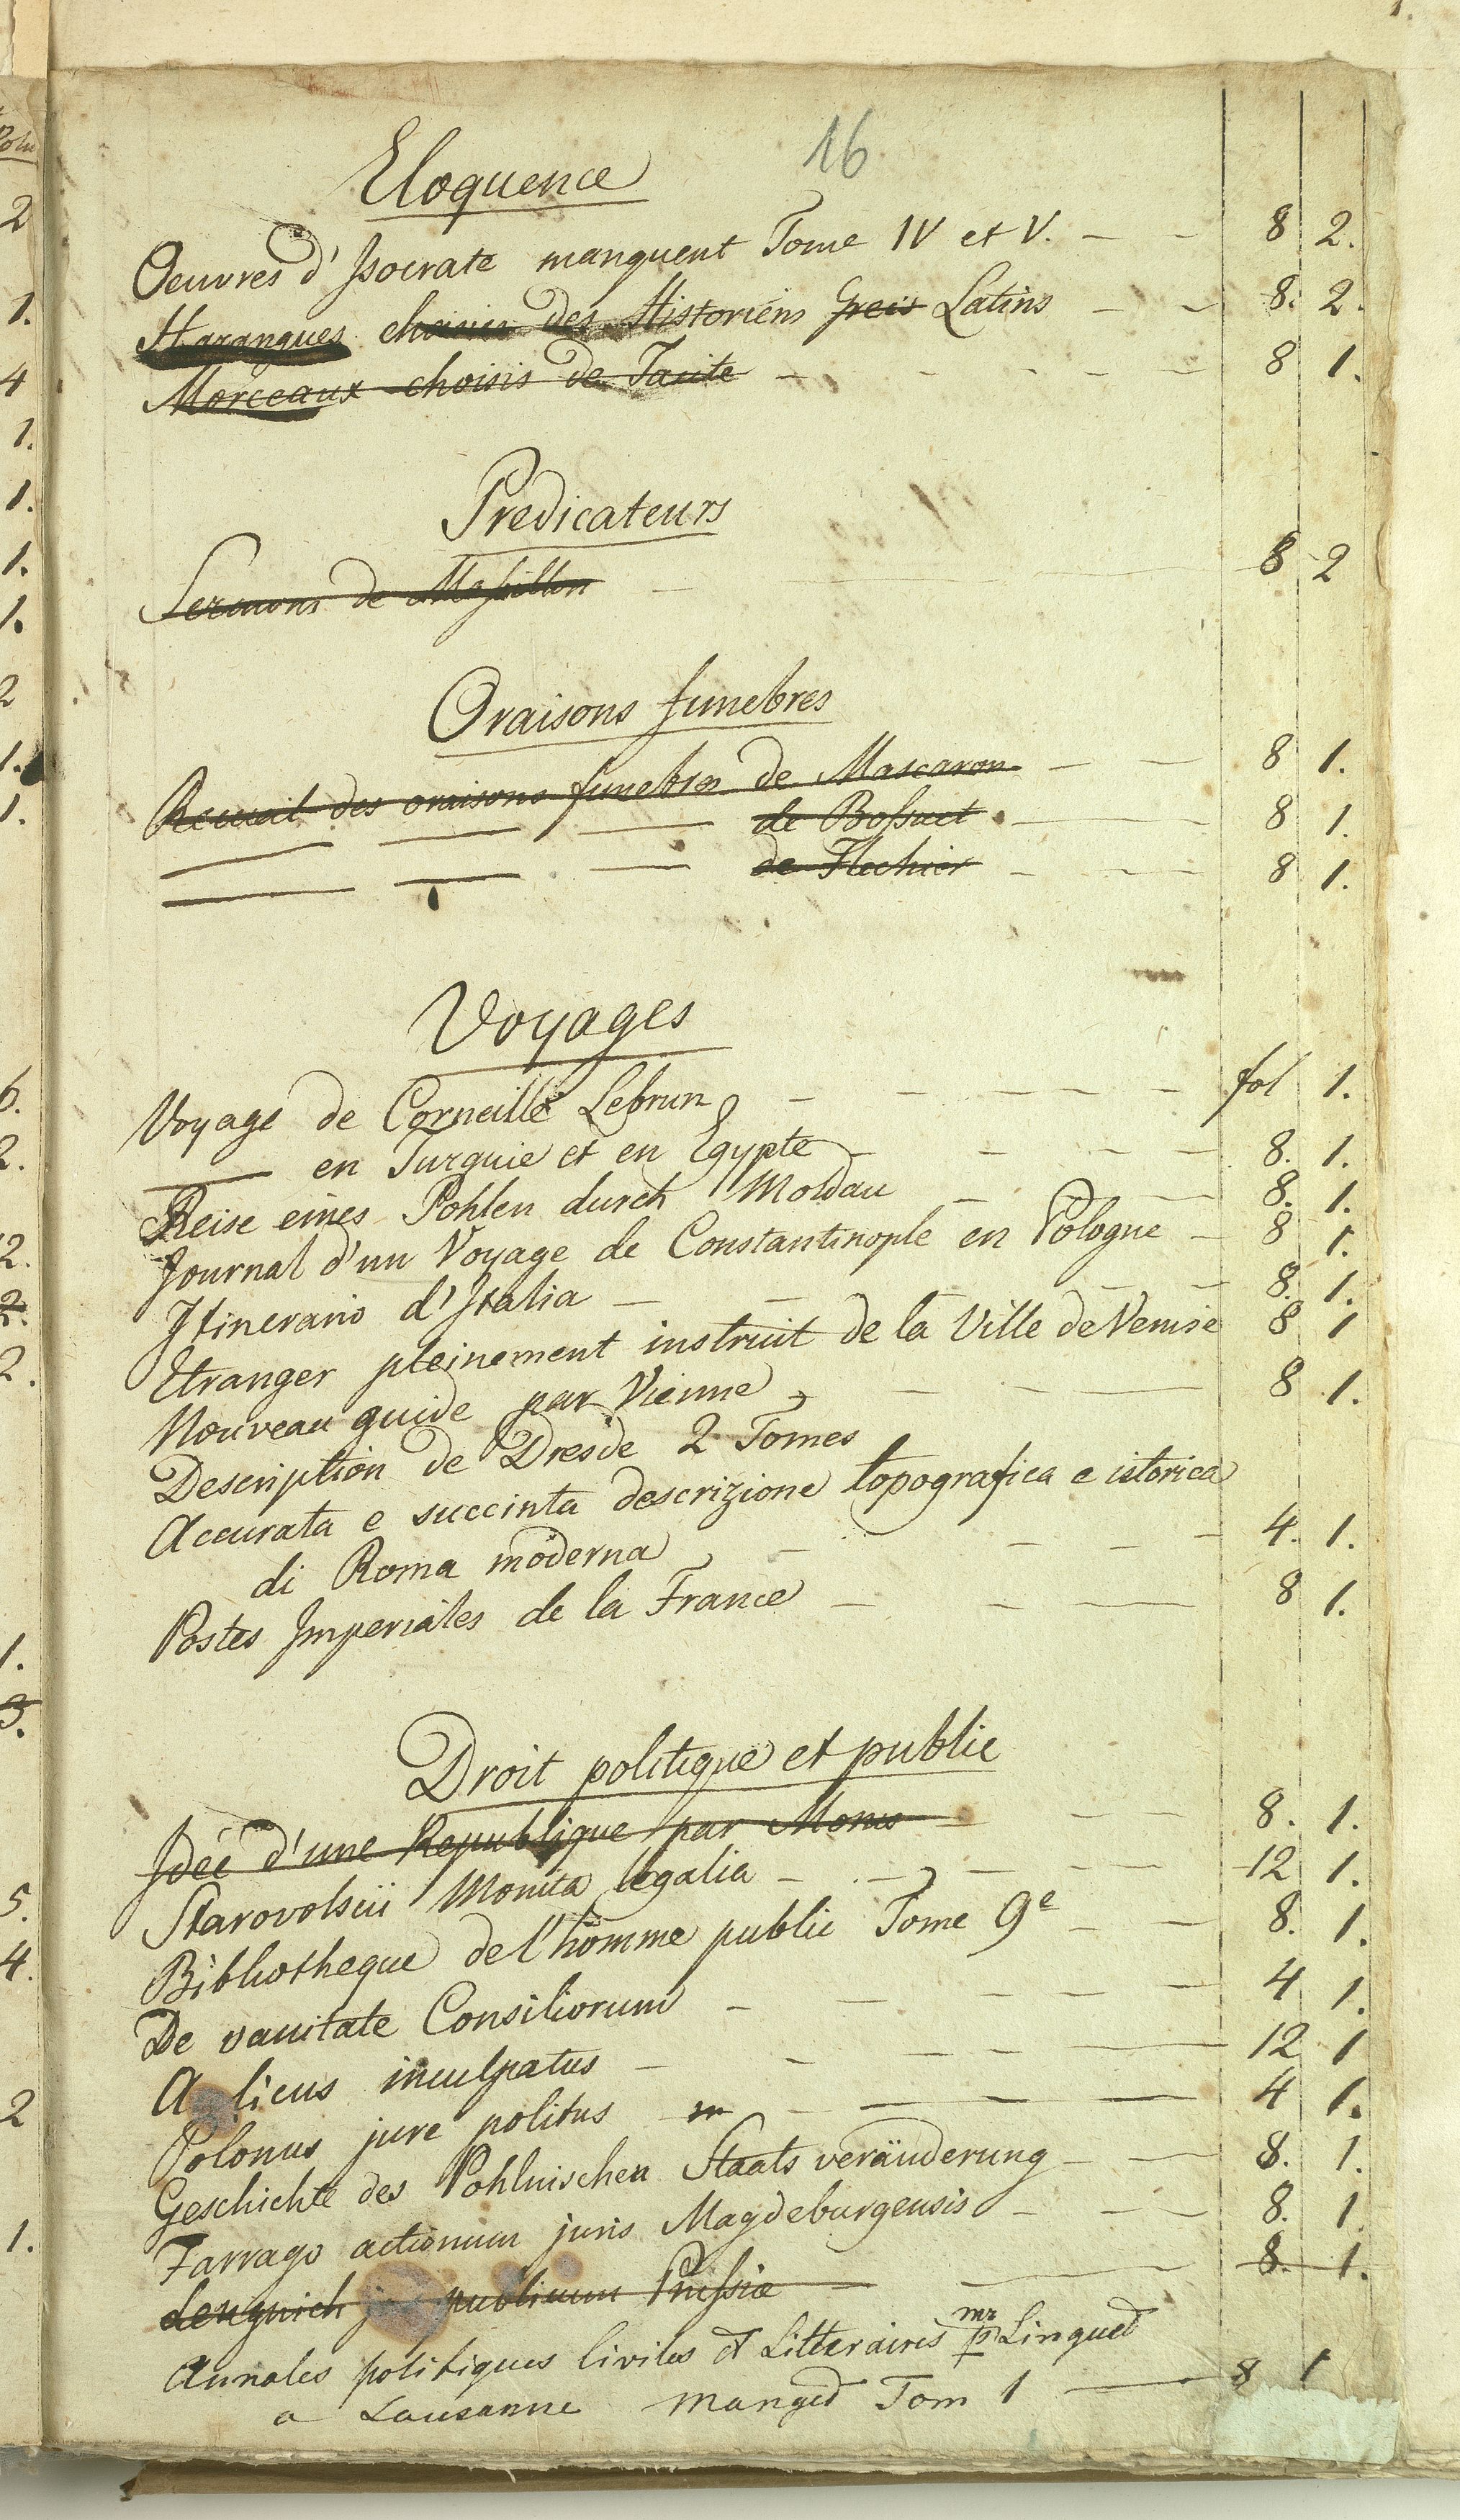 16
Eloquence
Oeuvres d'Isocrate manquent Tome IV et V. 8 2.
Harangues choisis des Historiens Grecs Latins 8. 2.
Morceaux choisis de Tacite 8 1.
Predicateurs
Sermons de Massillon 8 2
Oraisons funebres
Recueil des oraisons funebres de Mascaron 8 1.
de Bossuet 8 1.
de Flechier 8 1.
Voyages
Voyage de Corneille Lebrun fol 1.
en Turquie et en Egypte 8. 1.
Reise eines Pohlen durch Moldau 8. 1.
Journal d'un Voyage de Constantinople en Pologne 8 1.
Itinerario d'Italia 8. 1.
Etranger pleinement instruit de la Ville de Venise 8 1
Nouveau guide par Vienne 8 1.
Description de Dresde 2 Tomes
Accurata e succinta descrizione topografica e istorica
di Roma moderna 4. 1.
Postes Imperiales de la France 8 1.
Droit politique et public
Idée d'une Republique par Morus 8. 1.
Starovolscii Monita legalia 12 1.
Bibliotheque de l'homme public Tome 9e 8. 1.
De vanitate Consiliorum 4 1.
Aulicus inculpatus 12 1
Polonus jure politus 4 1.
Geschichte des Pohlnischen Staats veränderung 8. 1.
Farrago actionum juris Magdeburgensis 8. 1.
Lengnich jus publicum Prussiæ 8. 1.
Annales politiques Civiles et Litteraires p mr Linguet
a Lausanne manqet Tom 1 8 1